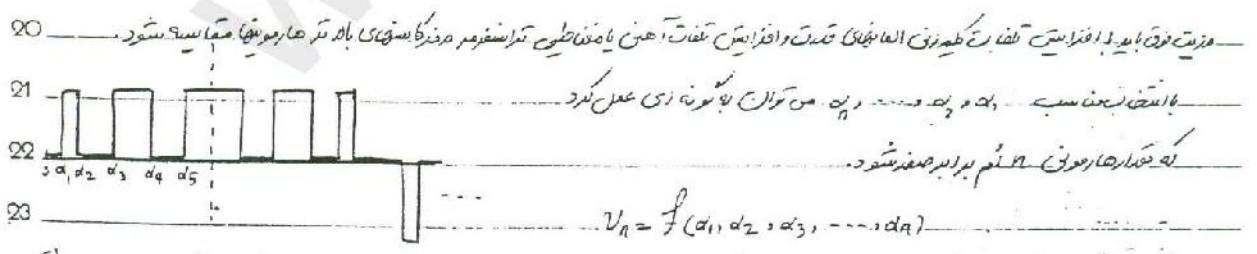 20 مزیت فوق باید با افزایش تلفات کلیدزنی المانهای قدرت و افزایش تلفات آهنی یا مغناطیسی ترانسفورمر در فرکانسهای بالاتر هارمونیها مقایسه شود.
21 با انتخاب مناسب α₁ و α₂ و ---- و αₙ می توان به گونه ای عمل کرد
22 که مقدار هارمونی n ام برابر صفر شود.
α₁ α₂ α₃ α₄ α₅
23 Vₙ = f(α₁, α₂, α₃, ----, αₙ)